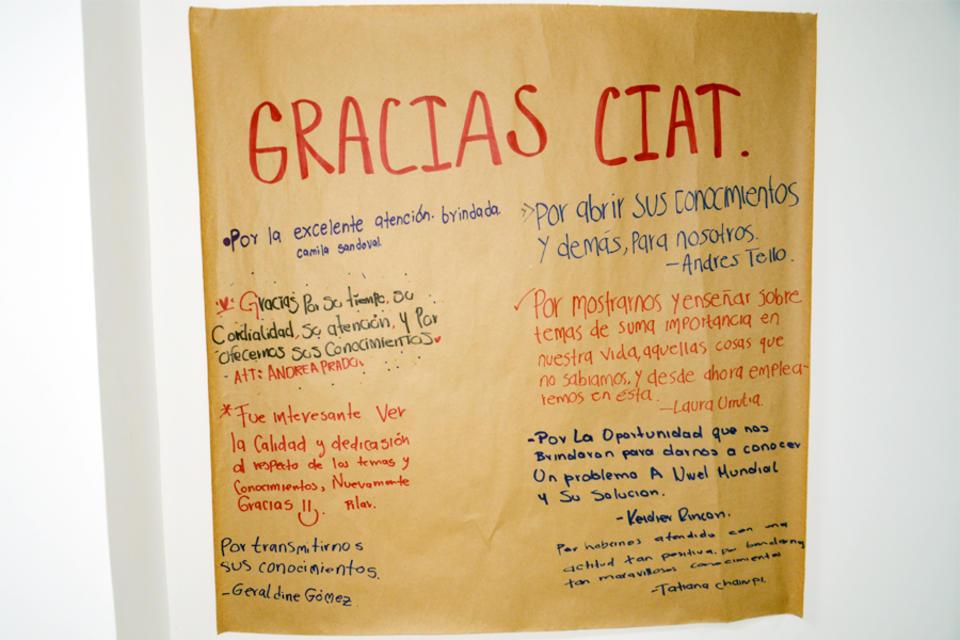 GRACIAS CIAT.
•Por la excelente atención. brindada.
camila sandoval.
* Gracias Por su tiempo, su
Cordialidad, su atención, y Por
ofrecernos sus Conocimientos
- ATT: ANDREA PRADO.
* Fue interesante Ver
la Calidad y dedicasión
al respecto de los temas y
Conocimientos, Nuevamente
Gracias !!. Pilar.
Por transmitirnos
sus conocimientos.
-Geraldine Gómez.
>>Por abrir sus conocimientos
y demás, para nosotros.
-Andres Tello.
✓Por mostrarnos y enseñar sobre
temas de suma importancia en
nuestra vida, aquellas cosas que
no sabiamos, y desde ahora emplea-
remos en ésta.
-Laura Urrutia.
-Por La Oportunidad que nos
Brindaron para darnos a conocer
Un problema A Nivel Mundial
y Su Solucion.
-Keidier Rincon.
Por habernos atendido con una
actitud tan positiva, por brindarnos
tan maravillosos conocimientos
-Tatiana